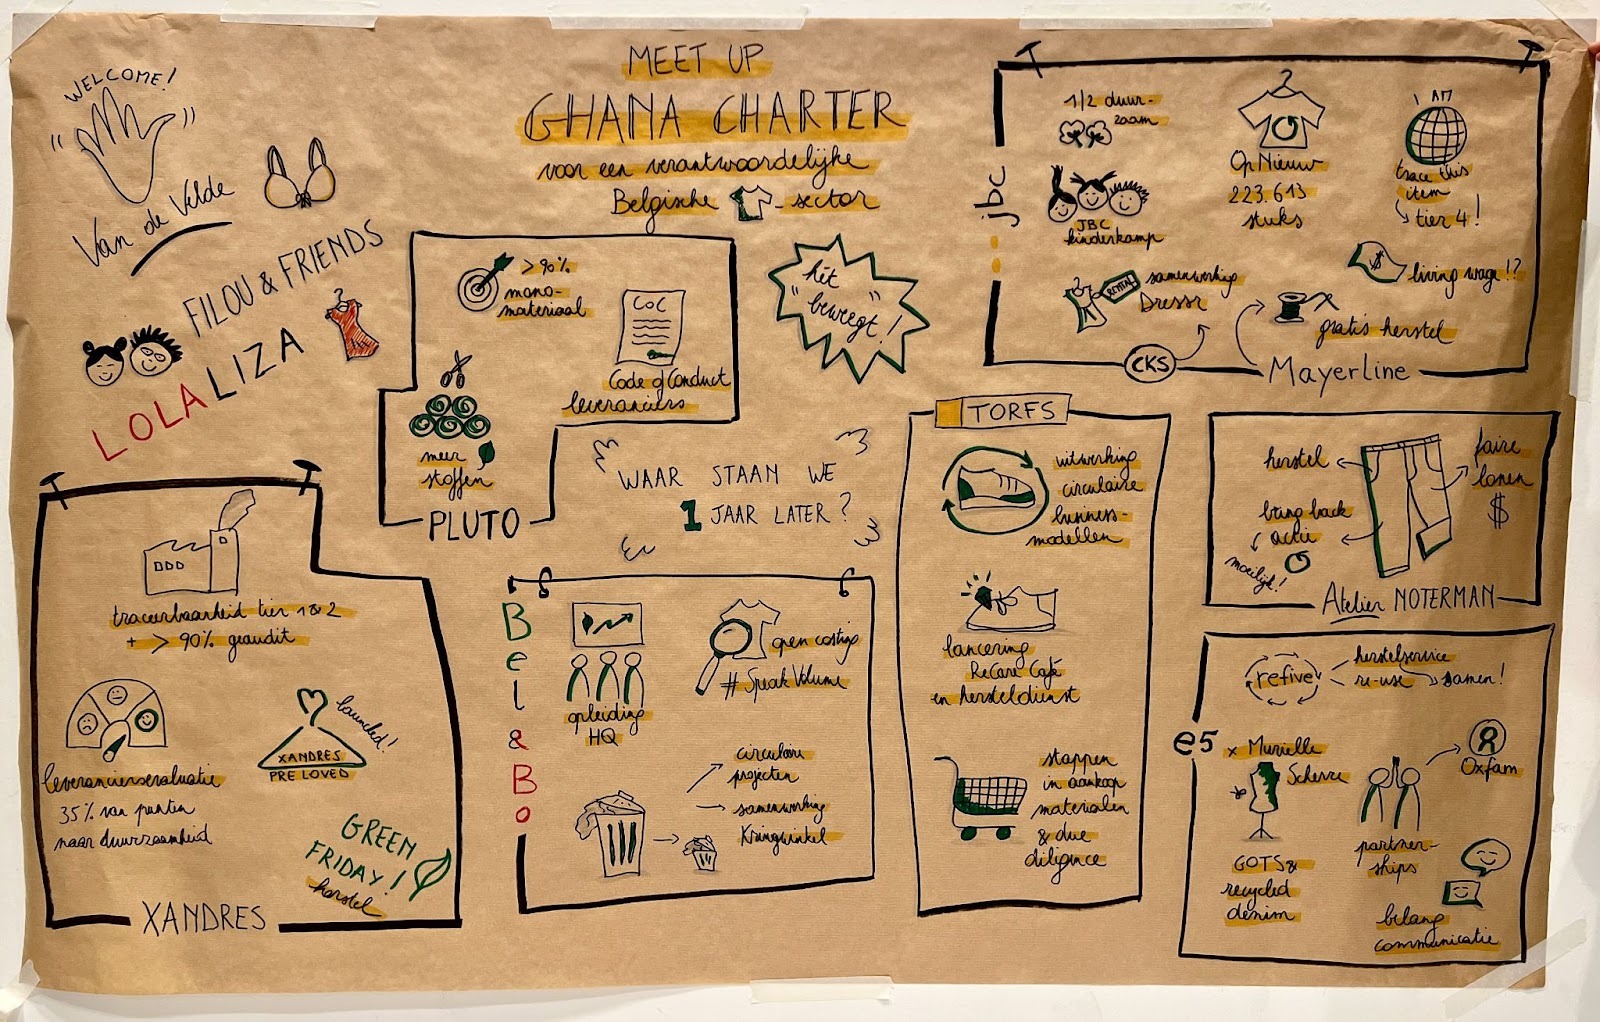 MEET UP
GHANA CHARTER
voor een verantwoordelijke
Belgische
sector
"WELCOME!"
Van de Velde
FILOU & FRIENDS
LOLALIZA
"het
beweegt"!
"WAAR STAAN WE
1 JAAR LATER?"
>90%
mono-
materiaal
CoC
Code of Conduct
leveranciers
meer
stoffen
PLUTO
jbc
1/2 duur-
zaam
Op Nieuw
223.613
stuks
I AM
trace this
item
tier 4!
JBC
kinderkamp
living wage!?
RENTAL
samenwerking
Dressr
CKS
gratis herstel
Mayerline
traceerbaarheid tier 1&2
+ > 90% geaudit
leveranciersevaluatie
35% van punten
naar duurzaamheid
launched!
XANDRES
PRE LOVED
GREEN
FRIDAY!
herstel
XANDRES
Bel&Bo
opleiding
HQ
open costing
#SpeakVolume
circulaire
projecten
samenwerking
Kringwinkel
TORFS
uitwerking
circulaire
business-
modellen
lancering
ReCare Café
en hersteldienst
stappen
in aankoop
materialen
& due
diligence
herstel
faire
lonen
$
bring back
actie
moeilijk!
Atelier NOTERMAN
e5
refive
herstelservice
re-use
samen!
x Murielle
Scherre
GOTS &
recycled
denim
partner-
ships
Oxfam
belang
communicatie